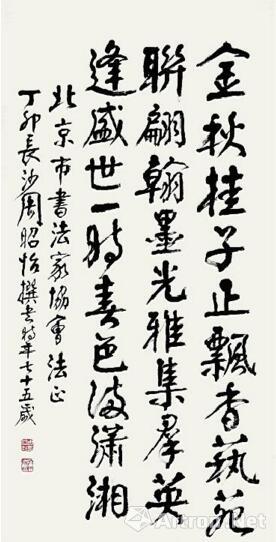 金秋桂子正飘香藝苑
聯翩翰墨光雅集羣英
逢盛世一時春色满瀟湘
北京市書法家協會法正
丁卯長沙周昭怡撰書時年七十五歲
Artron.Net